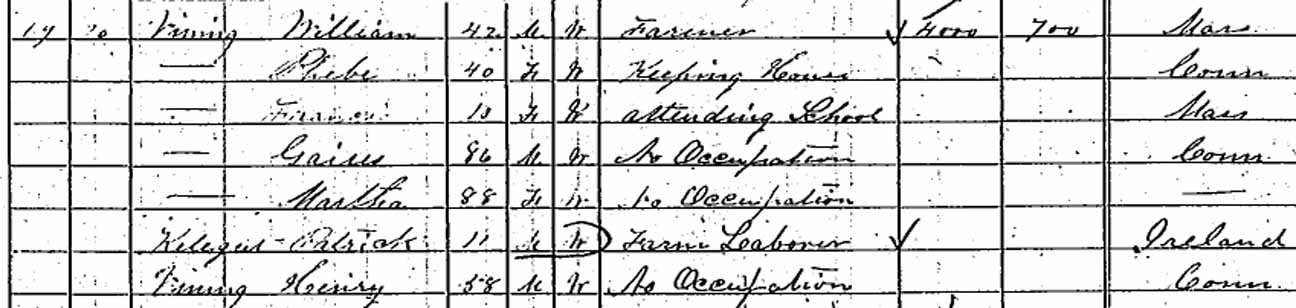 19 Vining William 42 M W Farmer ✓ 4000 700 Mass
— Phebe 40 F W Keeping House Conn
— F W attending School Mass
— Gaius 86 M W No Occupation Conn
— Martha 88 F W No Occupation —
Patrick 11 M W Farm Laborer ✓ Ireland
Vining Henry 58 M W No Occupation Conn